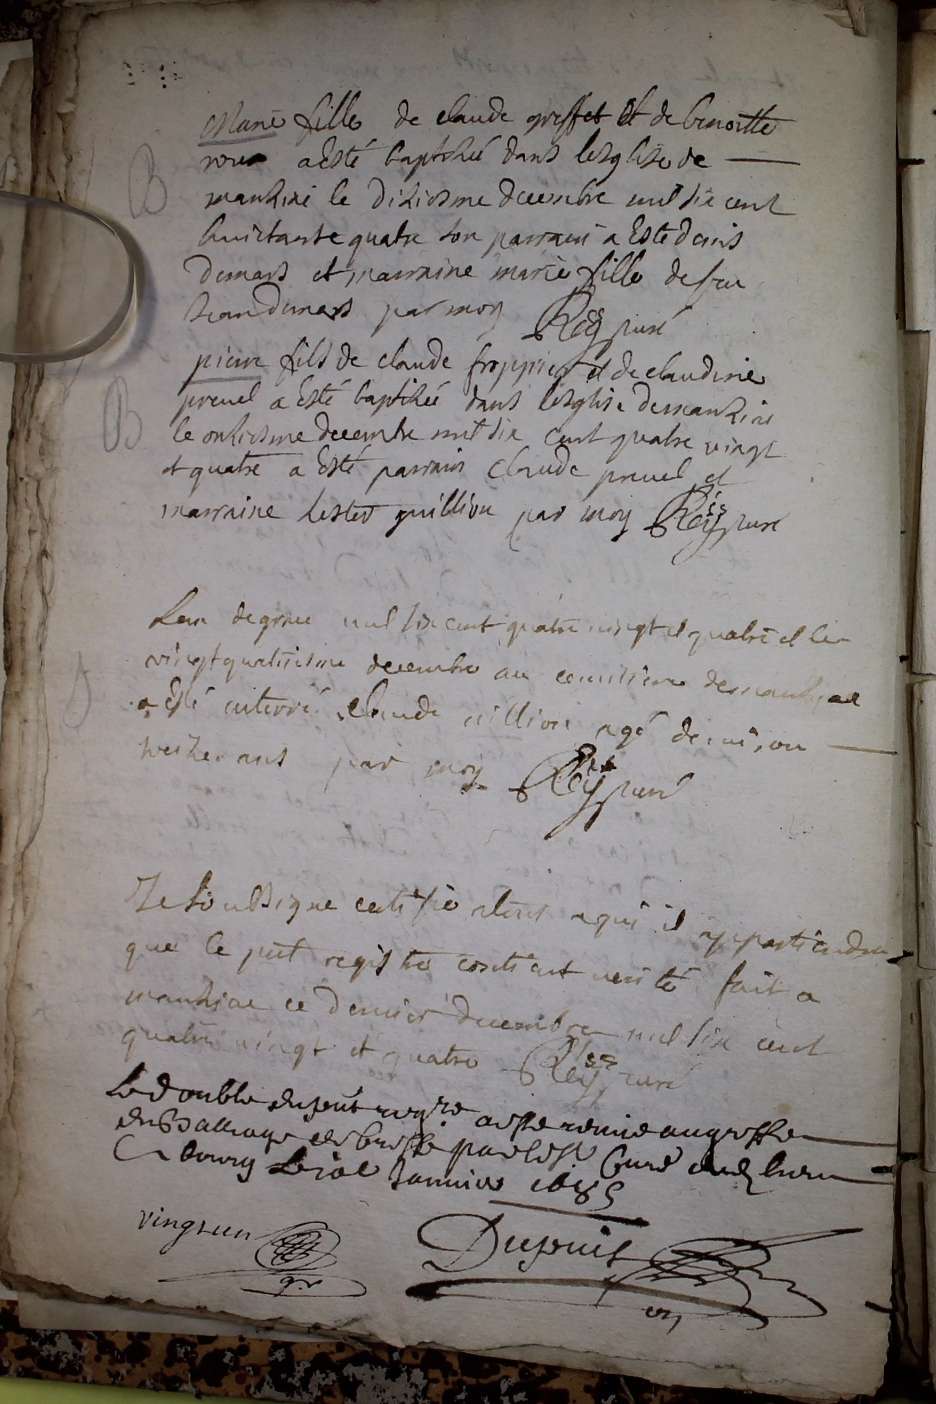 Marie fille de claude griffet Et de benoitte
a Esté baptisée dans leglise de
manziat le diziesme decembre mil six cent
huictante quatre son parrain a Esté denis
Demars et marraine marie fille de feu
Jean Demars par moy Rey curé
B
pierre fils de claude et de claudine
preuel a Esté baptizée dans leglise de manziat
B
le onziesme decembre mil six cent quatre vingt
et quatre a Esté parrain claude preuel et
marraine par moy Rey curé
Lan de grace mil six cent quatre vingt et quatre et le
vingt quatriesme decembre au cemitiere de manziat
a Esté enterré claude agé denuiron
treize ans par moy Rey curé
Je soubsigne certifie a tous a qui il appartiendra
que le pnt registre contient verité fait a
manziat ce dernier decembre mil six cent
quatre vingt et quatre Rey curé
Le double du pnt regre a este remis au greffe
du Balliage de bresse par le sr Curé dud lieu
a bourg le Janvier 1685
vingt un
Dupuis